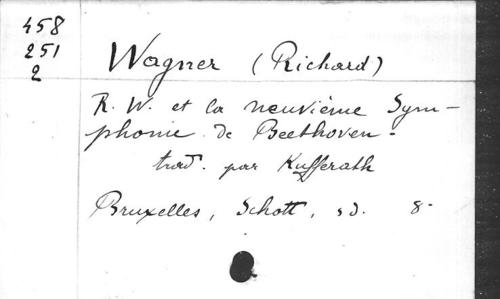 458
251
2
Wagner (Richard)
R. W. et la neuvième Sym-
phonie de Beethoven.
trad. par Kufferath
Bruxelles, Schott, s d. 8-